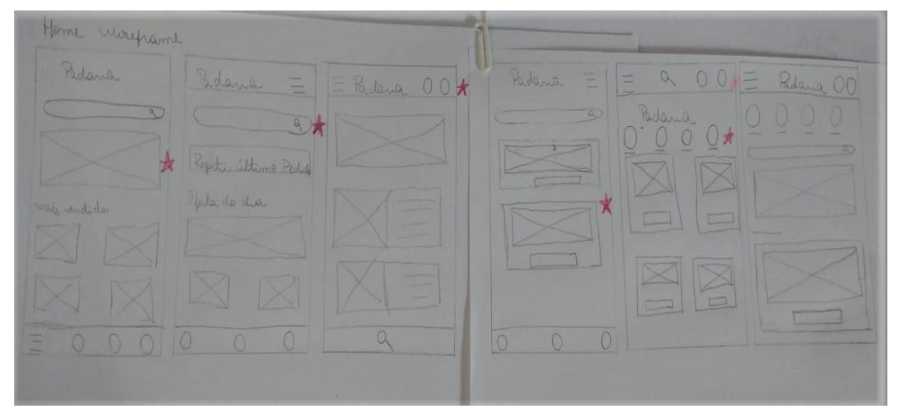 Home wireframe
Padaria
mais vendido
Padaria
Repetir último Pedido
Oferta do dia
Padaria
Padaria
Padaria
Padaria